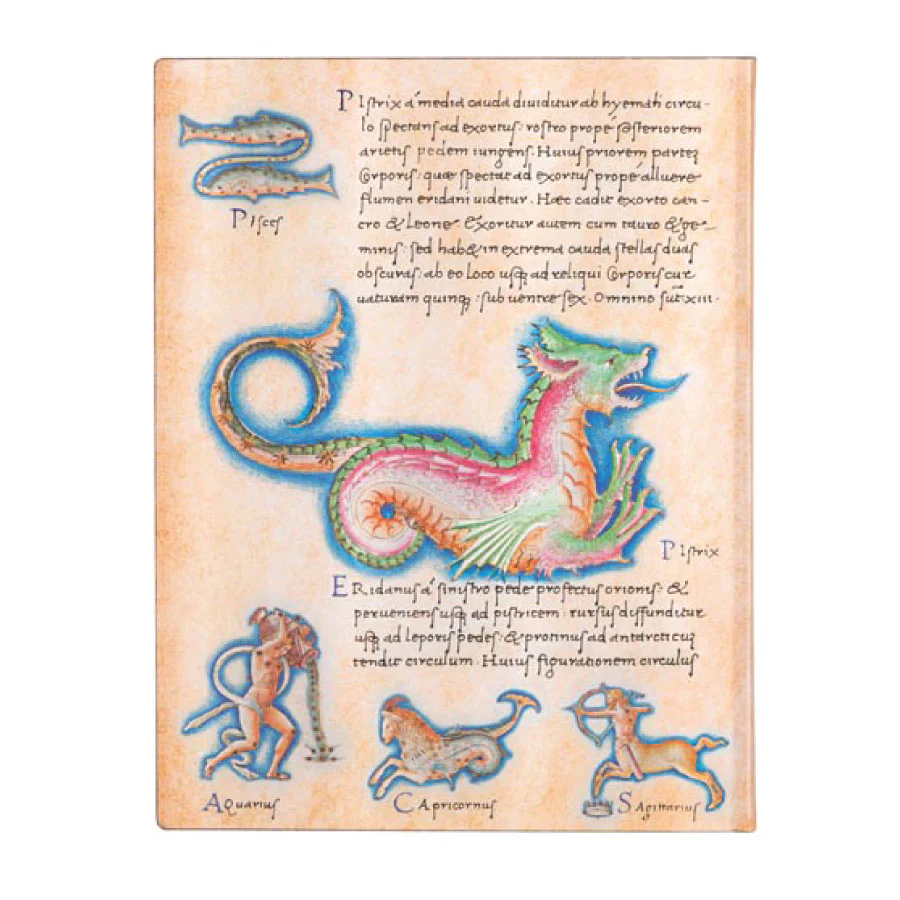 PIstrix á media cauda diuiditur ab hyemali circu-
lo spectans ad exortus: rostro prope posteriorem
arietis pedem iungens. Huius priorem partem
Corporis: quæ spectat ad exortus prope alluere
flumen eridani uidetur. Hæc cadit exorto can-
cro & Leone. Exoritur autem cum tauro & ge-
minis: sed hab& in extrema cauda stellas duas
obscuras: ab eo Loco usq; ad reliqui Corporis cur
uaturam quinq; : sub uentre sex. Omnino sūt xiii.
PIsces
PIstrix
ERidanus á sinistro pede profectus orionis: &
perueniens usq; ad pistricem: rursus diffunditur
usq; ad leporis pedes: & protinus ad antarcticuʒ
tendit circulum. Huius figurationem circulus
AQuarius
CApricornus
SAgittarius